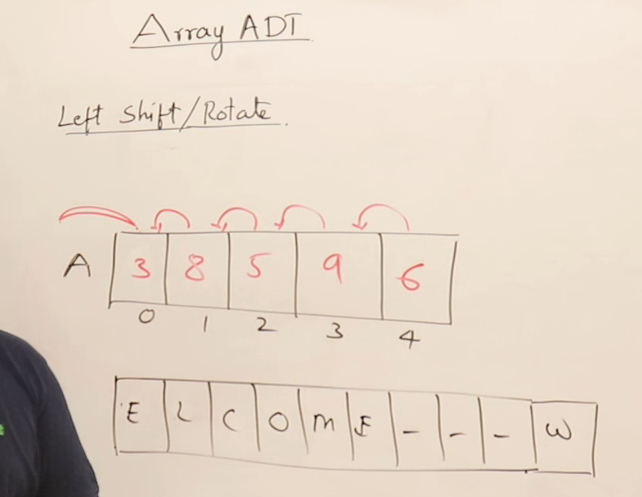 Array ADT
Left Shift/Rotate.
A 3 8 5 9 6
0 1 2 3 4
E L C O M E - - - W